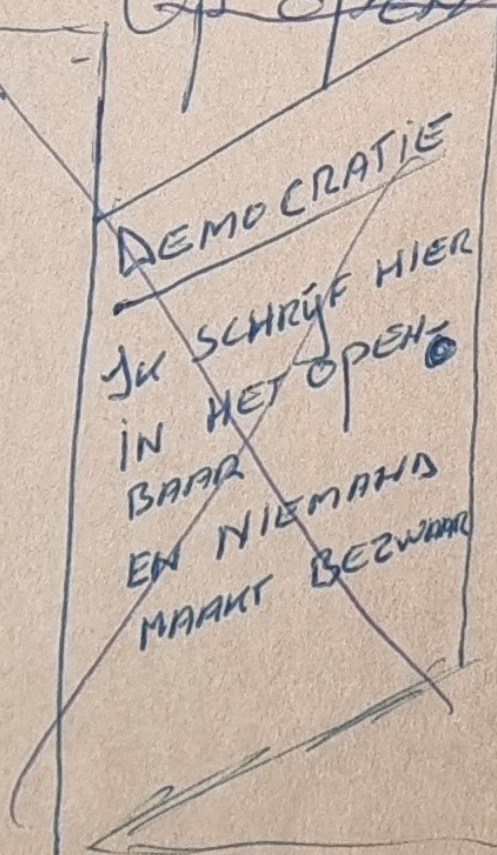 OPEN
DEMOCRATIE
IK SCHRIJF HIER
IN HET OPEN-
BAAR
EN NIEMAND
MAAKT BEZWAAR